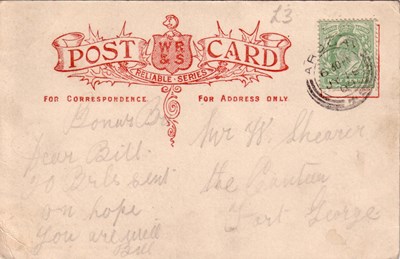 £3
POST CARD
WR
& S
RELIABLE SERIES
FOR CORRESPONDENCE FOR ADDRESS ONLY
Dear Bill
sent
on hope
you are well
Mr W. Shearer
the Canteen
Fort George